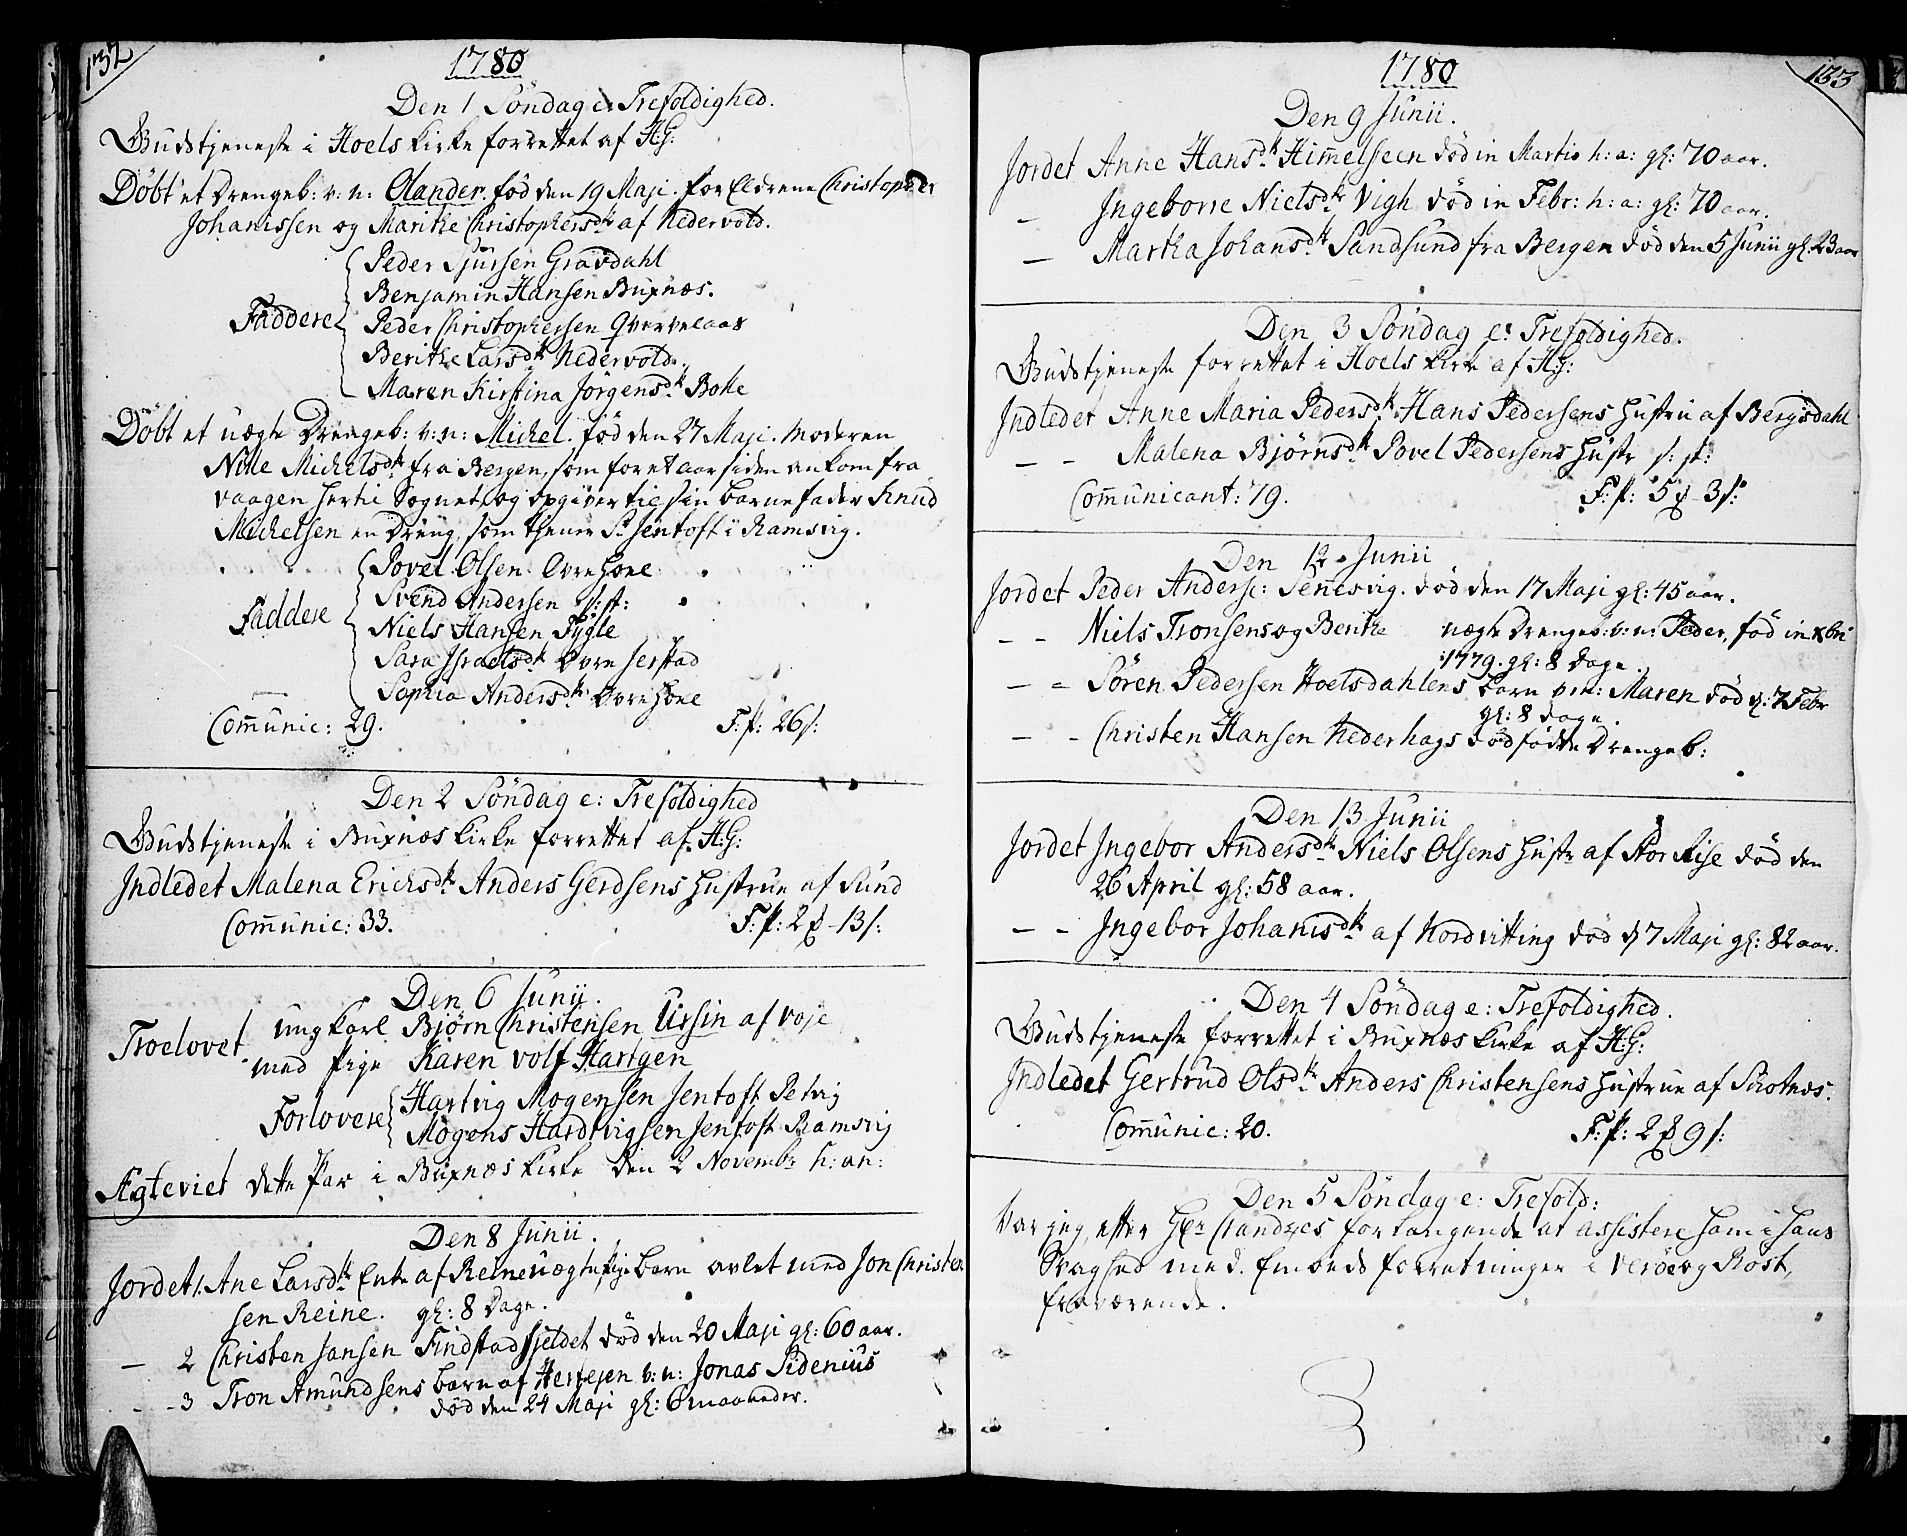 132
1780
Den 1 Söndag e: Trefoldighed.
Gudstjeneste i Hoels kirke forrettet af H:G:
Döbt et Drengeb: v: n: Olander. fód den 19 Maji. forældrene Christopher
Johanssen og Marithe Christophersdtr af Nedervold.
Peder Sjursen Gravdahl
Benjamin Hansen Buxnæs.
Faddere Peder Christophersen Qvervelaas
Berithe Larsdtr Nedervold.
Maren Kirstina Jörgensdtr Bolle
Döbt et uægte Drengeb: v: n: Michel. fód den 27 Maji. Moderen
Nille Michelsdtr fra Bergen, som for et aar siden ankom fra
vaagen her til Sognet, og opgiver til sin barnefader Knud
Michelsen en Dreng, som tjener Sr Jentoft i Ramsvig.
Povel Olsen Ovre Hole
Svend Andersen s: st:
Faddere Niels Hansen Fygle
Sara Israelsdtr Ovre Jerstad
Sophia Andersdtr Ovre Hole
Com̃unic: 29. F: p: 26 s:
Den 2 Söndag e: Trefoldighed
Gudstjeneste i Buxnæs kirke forrettet af H:G:
Indledet Malena Erichsdtr Anders Gerdsens Hustrue af Sund
Com̃unic: 33. F: p: 2 ß - 13 s:
Den 6 Junii.
Troelovet ungkarl Bjørn Christensen Ursin af voje
med pige Karen Volf Hartgen
Forlovere Hartvig Mogensen Jentoft Petvig
Mogens Hardtvigsen Jentoft Ramsvig
Ægteviet dette Par i Buxnæs kirke den 2 Novembr h: an:
Den 8 Junii.
Jordet 1. Ane Larsdtr Enke af Reine uægte pige barn avlet med Jon Christen
sen Reine. gl: 8 Dage.
— 2 Christen Jansen Findstad fjeldet död den 20 Maji gl: 60 aar.
- - 3 Tron Amundsens barn af v: n: Jonas Sidenius
död den 24 Maji gl: 6 maaneder.
133
1780
Den 9 Junii.
Jordet Anne Hansdtr Him̃elsteen död in Martio h: a: gl: 70 aar.
— Ingeborre Nielsdtr Vigh död in Febr: h: a: gl: 70 aar.
— Martha Johansdtr Sandsund fra Bergen död den 5 Junii gl: 23 aar
Den 3 Söndag e: Trefoldighed.
Gudstjeneste forrettet i Hoels kirke af H:G:
Indledet Anne Maria Pedersdtr Hans Pedersens Hustru af Bergsdahl
— - Malena Bjørnsdtr Povel Pedersens Hustr s: st:
Com̃unicant: 79. F: p: 5 ß - 3 s:
Den 12 Junii
Jordet Peder Anderss: Sen̄esvig. död den 17 Maji gl: 45 aar.
— - Niels Tronsens og Berithe uægte Drengeb: v: n: Peder, fód in xbri
1779. gl: 8 Dage.
— = Sören Pedersen Hoelsdahlens barn v: n: Maren död d: 7 Febr
gl: 8 dage.
— - Christen Hansen Nederhags dödfódte Drengeb:
Den 13 Junii
Jordet Ingebor Andersdtr Niels Olsens Hustr af Stor Eise död den
26 April gl: 58 aar.
— - Ingebor Johanisdtr af Nordvitting död d 7 Maji gl: 82 aar.
Den 4 Söndag e: Trefoldighed.
Gudstjeneste forrettet i Buxnæs kirke af H:G:
Indledet Gertrud Olsdtr Anders Christensens Hustrue af Skotnæs.
Com̃unic: 20. F: p: 2 ß 9 s:
Den 5 Söndag e: Trefold:
Var jeg, efter Hr forlangende at assistere ham i hans
Svaghed med Embeds forretninger i Veröe og Röst,
fraværende.